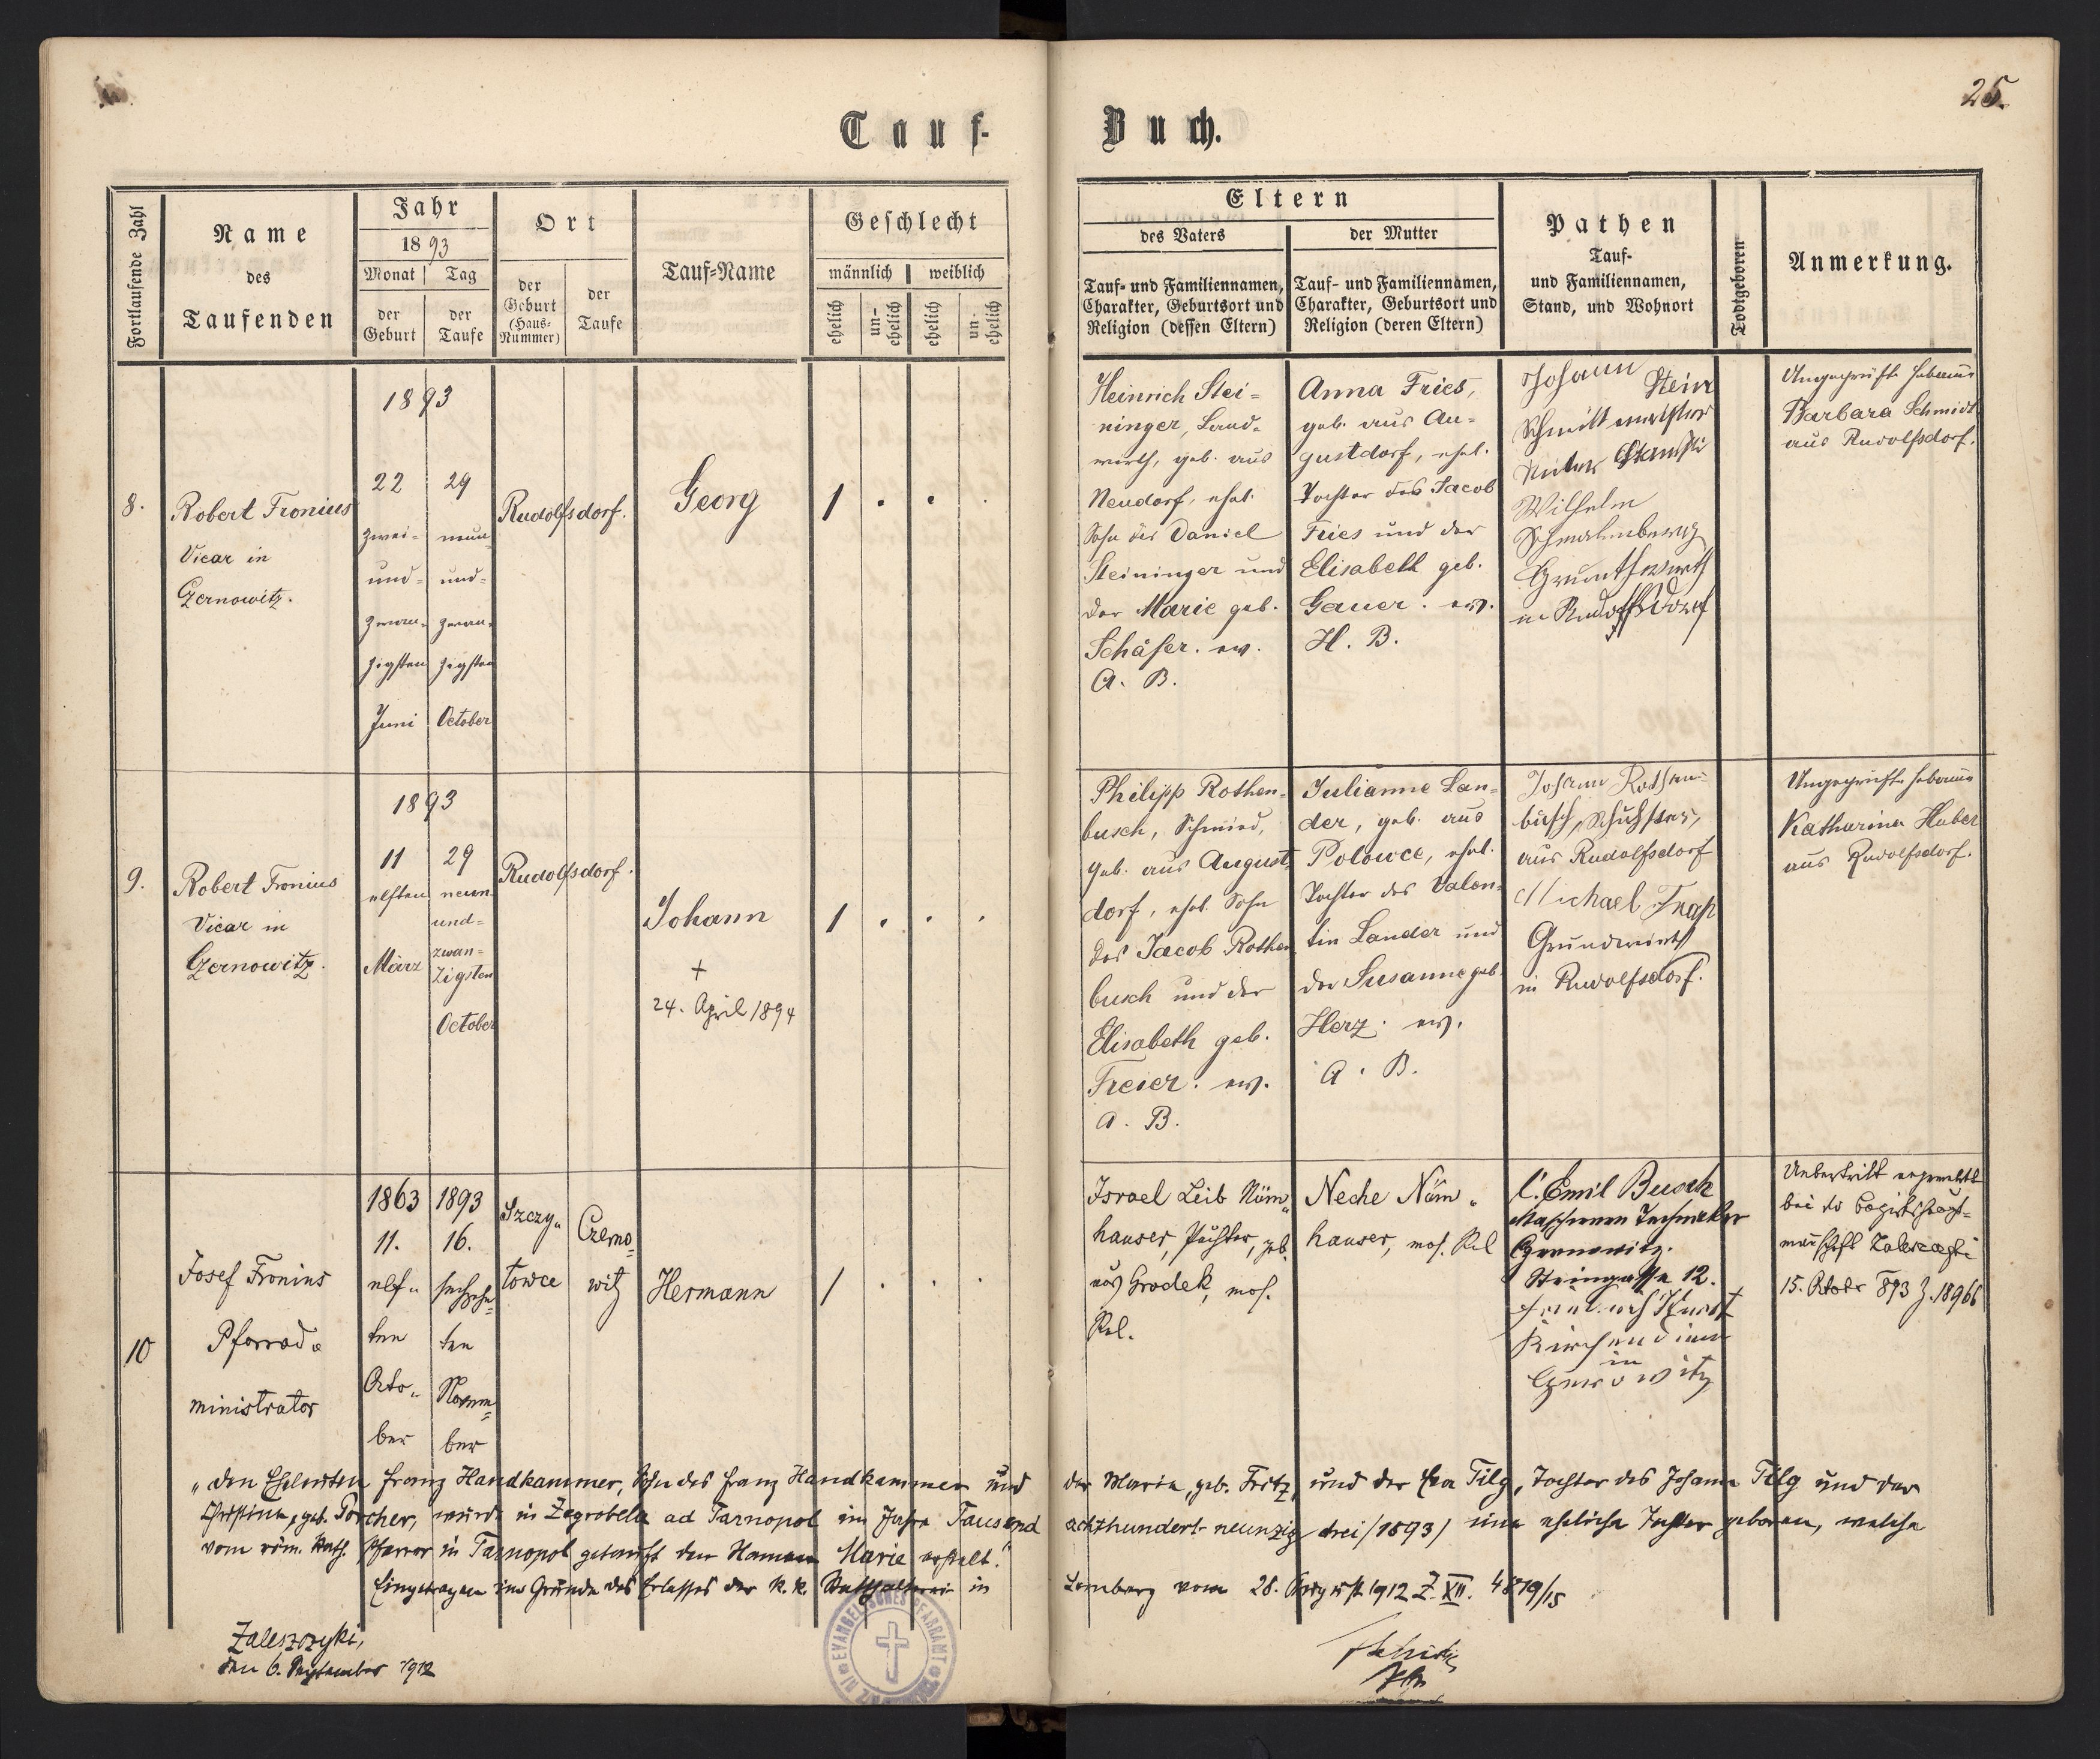 25.
Tauf-
Buch.
Fortlaufende Zahl
Name
des
Taufenden
Jahr
1893
Monat
Tag
der
Geburt
der
Taufe
Ort
der
Geburt
(Haus-
Nummer)
der
Taufe
Tauf-Name
Geschlecht
männlich
weiblich
ehelich
un-
ehelich
ehelich
un-
ehelich
Eltern
des Vaters
der Mutter
Tauf- und Familiennamen,
Charakter, Geburtsort und
Religion (dessen Eltern)
Tauf- und Familiennamen,
Charakter, Geburtsort und
Religion (deren Eltern)
Pathen
Tauf-
und Familiennamen,
Stand, und Wohnort
Todtgeboren
Anmerkung.
8.
Robert Fronius
Vicar in
Czernowitz.
1893
22
zwei-
und-
zwan-
zigsten
Juni
29
neun-
und-
zwan-
zigsten
October
Rudolfsdorf.
Georg
1
Heinrich Stei-
ninger, Land-
wirth, geb. aus
Neudorf, ehel.
Sohn des Daniel
Steininger und
der Marie geb.
Schäfer. ev.
A. B.
Anna Fries,
geb. aus Au-
gustdorf, ehel.
Tochter des Jacob
Fries und der
Elisabeth geb.
Gauer. ev.
H. B.
Johann
Wilhelm
in Rudolfsdorf
Ungeprüfte Hebamme
Barbara Schmidt
aus Rudolfsdorf.
9.
Robert Fronius
Vicar in
Czernowitz.
1893
11
elften
März
29
neun-
und-
zwan-
zigsten
October
Rudolfsdorf.
Johann
+
24. April 1894
1
Philipp Rothen-
busch, Schmied,
geb. aus August-
dorf, ehel. Sohn
des Jacob Rothen-
busch und der
Elisabeth geb.
Freier. ev.
A. B.
Julianne Lan-
der, geb. aus
Polowce, ehel.
Tochter des Valen-
tin Lander und
der Susanne geb.
Herz. ev.
A. B.
Johann Rothen-
busch, Schuster,
aus Rudolfsdorf
Michael Trap
Grundwirth
in Rudolfsdorf.
Ungeprüfte Hebamme
Katharina Huber
aus Rudolfsdorf.
10
Josef Fronius
Pfarrad„
ministrator
1863
11.
elf„
ten
Octo„
ber
1893
16.
sechzehn=
ten
Novem=
ber
Szczy„
towce
Czerno=
witz
Hermann
1
Israel Leib Nüm„
hauser, Pächter, geb.
aus Grodek, mos.
Rel.
Neche Nüm„
hauser, mos. Rel
Emil Busch
Czernowitz.
Steingasse 12.
Kirchendiener
in
Czernowitz
Uebertritt angemeldet
bei der Bezirkshaupt=
mannschaft Zaleszczyki
15. October 893 Z. 18966
„Den Eheleuten Franz Handkammer, Sohn des Franz Handkammer und der Maria, geb. Fritz, und der Eva Tilg, Tochter des Johann Tilg und der
Christine, geb. Porcher, wurde in Zagrobela ad Tarnopol im Jahre Tausend achthundert neunzig drei /1893/ eine eheliche Tochter geboren, welche
vom röm. kath. Pfarrer in Tarnopol getauft den Namen Marie erhielt."
Eingetragen im Grunde des Erlasses der k. k. Statthalterei in Lemberg vom 28. August 1912 Z. XII. 4879/15
Zaleszczyki,
den 6. September 1912
EVANGELISCHES PFARRAMT